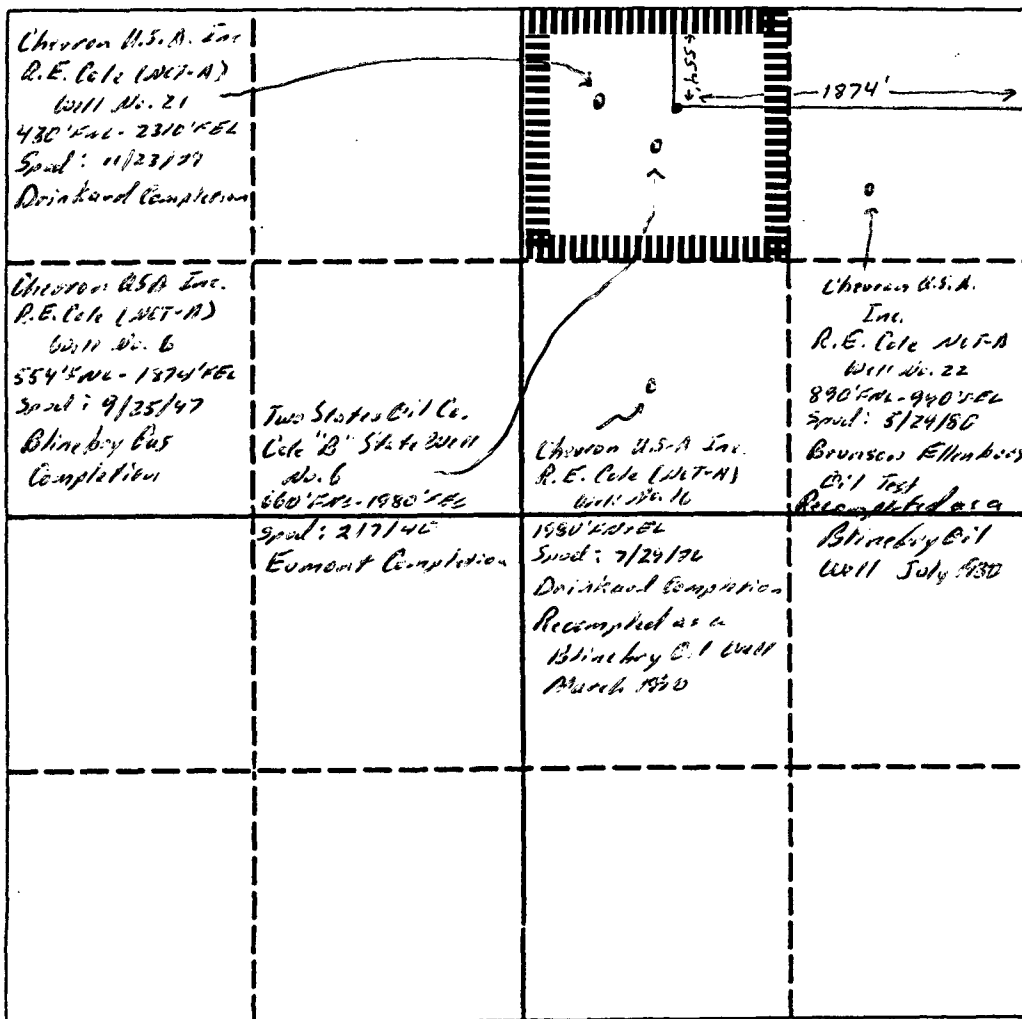 Chevron U.S.A. Inc
R.E. Cole (NCT-A)
Well No. 21
430'FNL - 2310'FEL
Spud: 11/23/79
Drinkard Completion
554'
1874'
Chevron USA Inc.
R.E. Cole (NCT-A)
Well No. 6
554'FNL - 1874'FEL
Spud: 9/25/47
Blinebry Gas
Completion
Two States Oil Co.
Cole "B" State Well
No. 6
660'FNL - 1980'FEL
Spud: 2/7/
Eumont Completion
Chevron U.S.A Inc.
R.E. Cole (NCT-A)
Well No. 16
1980'FN&EL
Spud: 7/29/76
Drinkard Completion
Recompleted as a
Blinebry Oil Well
March 1980
Chevron U.S.A.
Inc.
R.E. Cole NCT-A
Well No. 22
890'FNL - 990'FEL
Spud: 5/24/80
Brunson Ellenburg
Oil Test
Recompleted as a
Blinebry Oil
Well July 1980